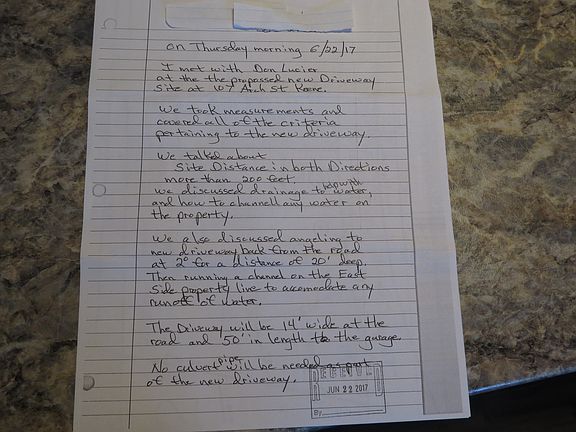 on Thursday morning 6/22/17
I met with Don Lucier
at the the proposed new Driveway
Site at 107 Arch St Keene.
We took measurements and
covered all of the criteria
pertaining to the new driveway.
We talked about
Site Distance in both Directions
more than 200 feet
we discussed drainage to help with water,
and how to channell any water on
the property.
We also discussed angeling to
new driveway back from the road
at 2° for a distance of 20' deep.
Then running a channel on the East
Side property live to accomodate any
runoff of water.
The Driveway will be 14' wide at the
road and 50' in length to the garage.
No culvert pipe will be needed as part
of the new driveway.
RECEIVED
JUN 22 2017
By